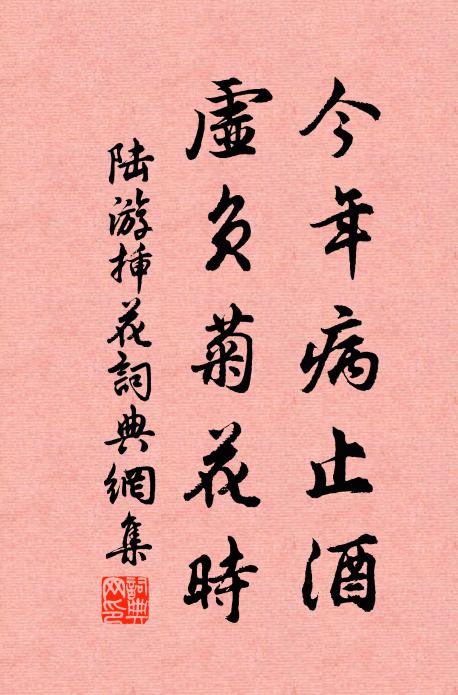 今年病止酒
虛負菊花時
陆游插花詞典網集
詞典网印